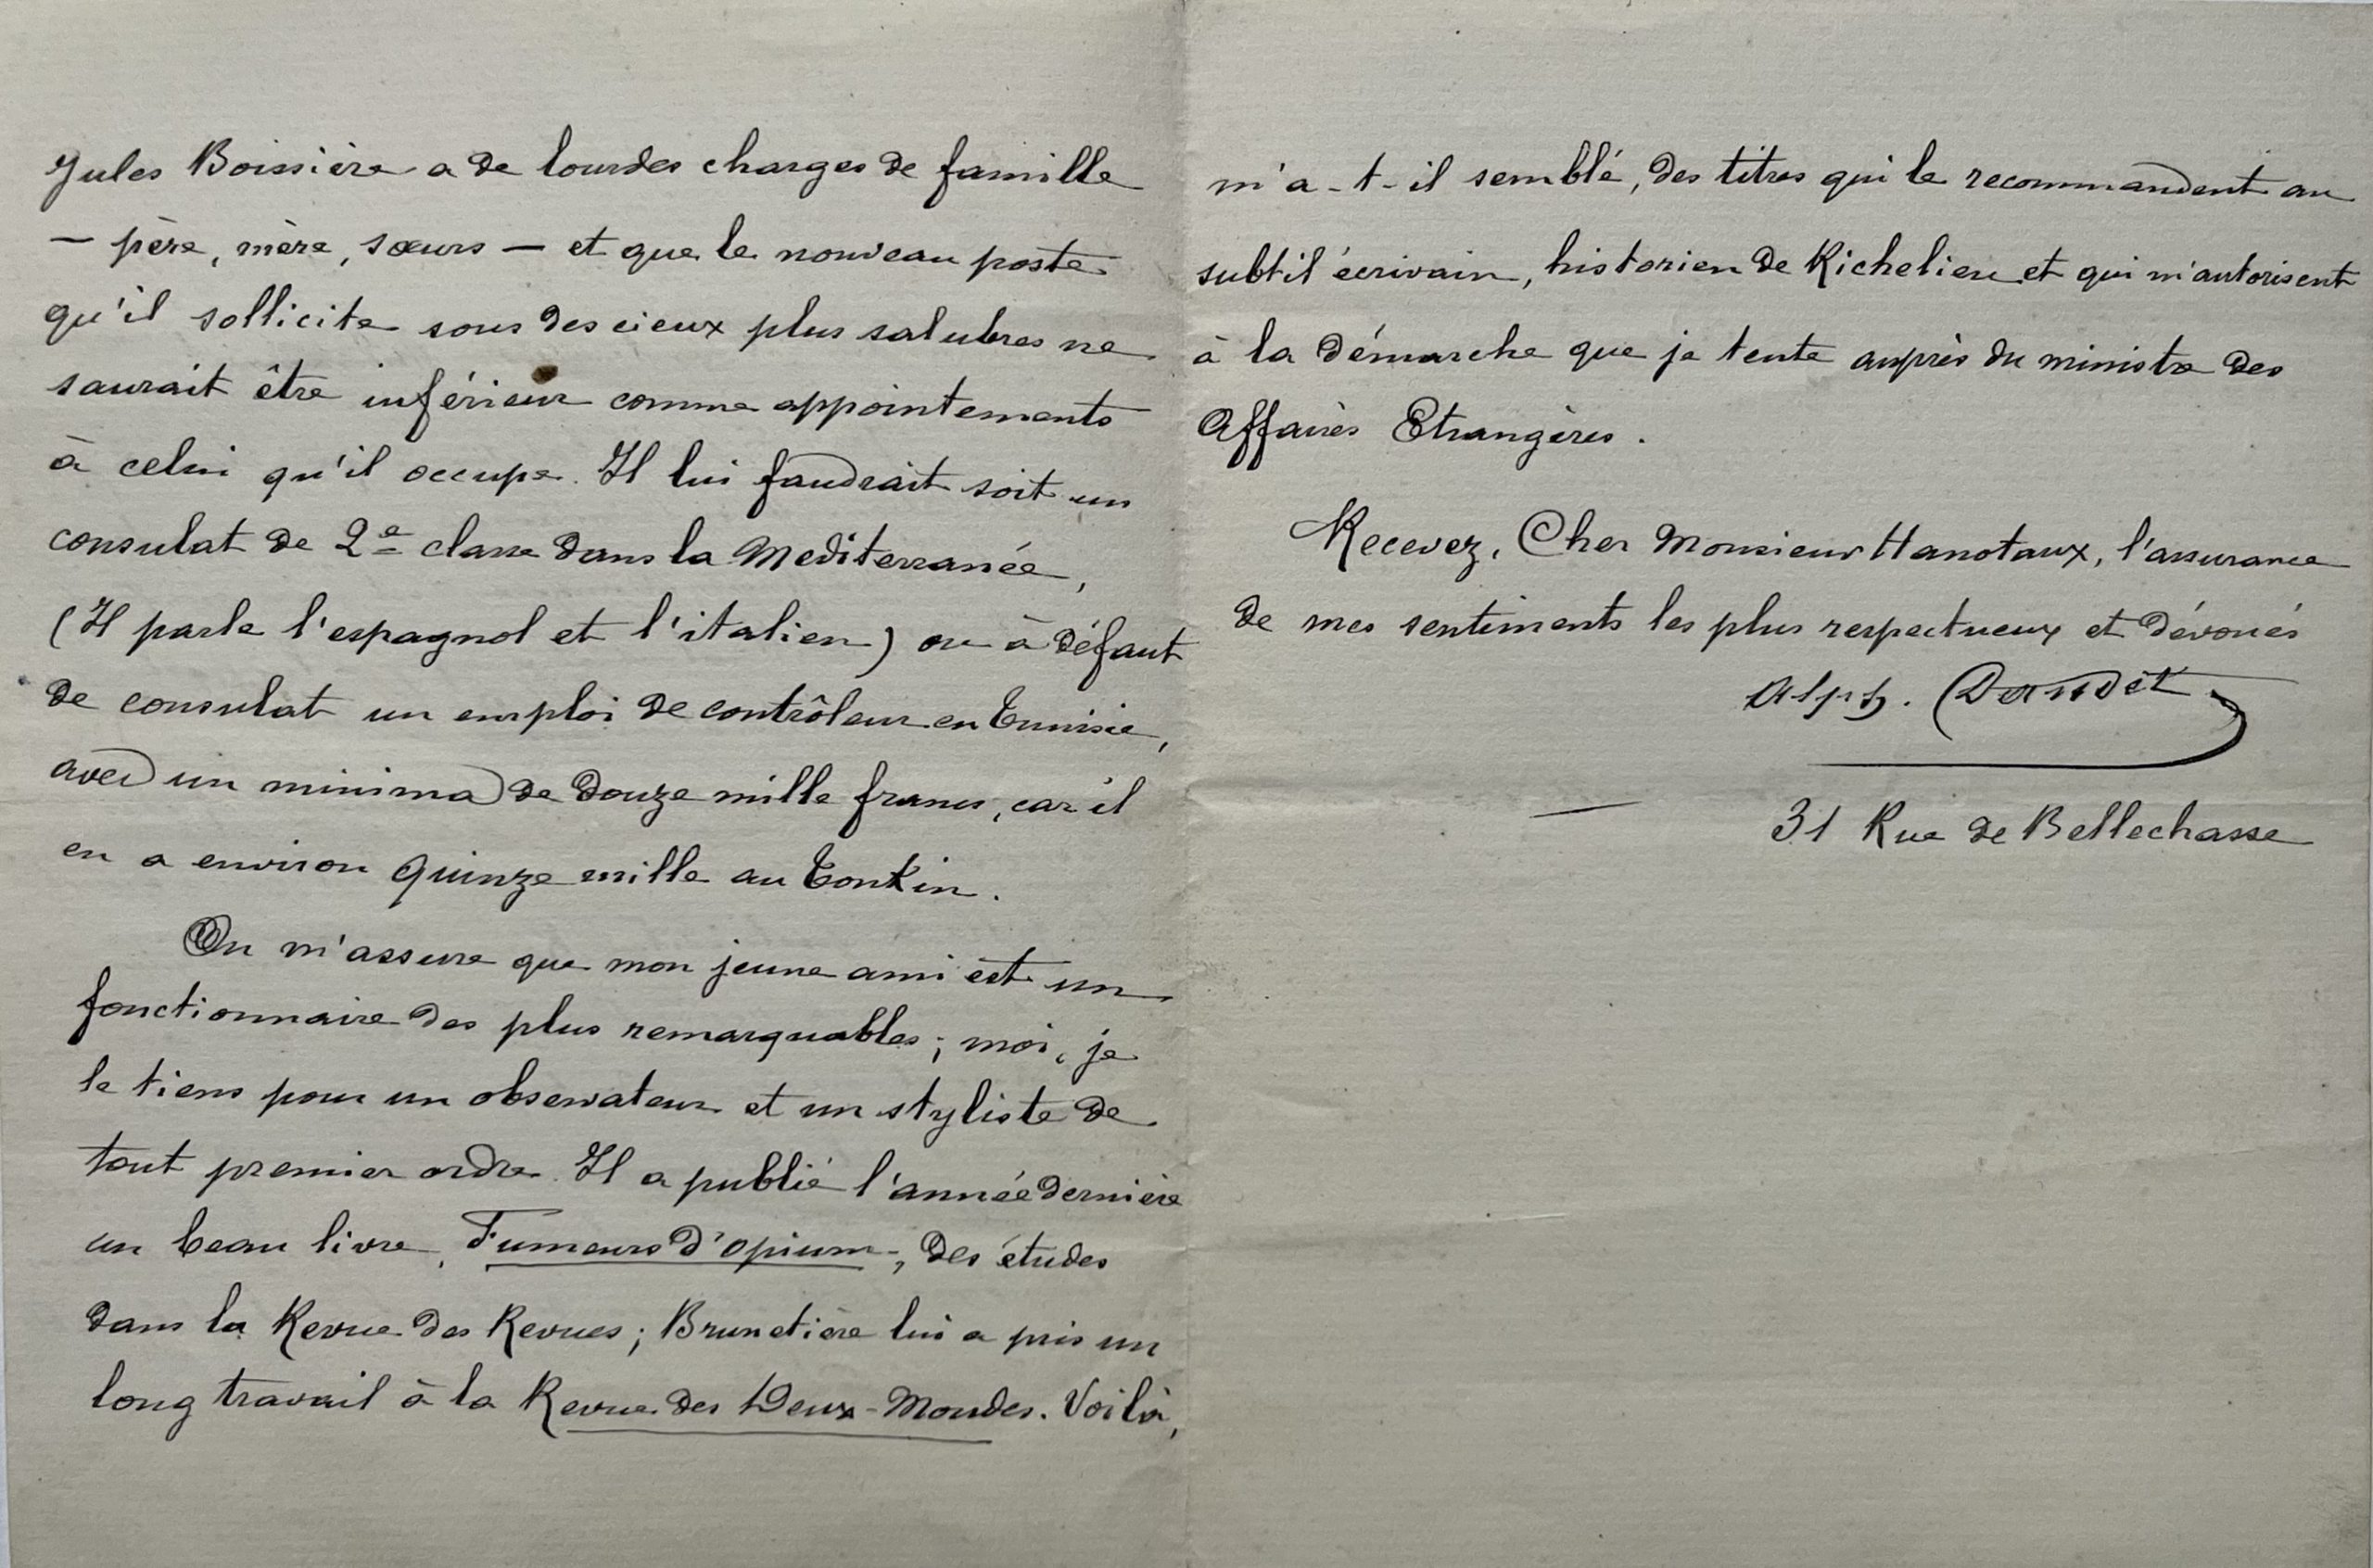 Jules Boissière a de lourdes charges de famille
— père, mère, sœurs — et que le nouveau poste
qu'il sollicite sous des cieux plus salubres ne
saurait être inférieur comme appointements
à celui qu'il occupe. Il lui faudrait soit un
consulat de 2e classe dans la Mediterranée,
(Il parle l'espagnol et l'italien) ou à défaut
de consulat un emploi de contrôleur en Tunisie,
avec un minima de douze mille francs, car il
en a environ quinze mille au Tonkin.
On m'assure que mon jeune ami est un
fonctionnaire des plus remarquables ; moi, je
le tiens pour un observateur et un styliste de
tout premier ordre. Il a publié l'année dernière
un beau livre, Fumeurs d'opium, des études
dans la Revue des Revues ; Brunetière lui a pris un
long travail à la Revue des Deux-Mondes. Voilà,
m'a-t-il semblé, des titres qui le recommandent au
subtil écrivain, historien de Richelieu et qui m'autorisent
à la démarche que je tente auprès du ministre des
Affaires Etrangères.
Recevez, Cher Monsieur Hanotaux, l'assurance
de mes sentiments les plus respectueux et dévoués
Alph. Daudet
— 31 Rue de Bellechasse